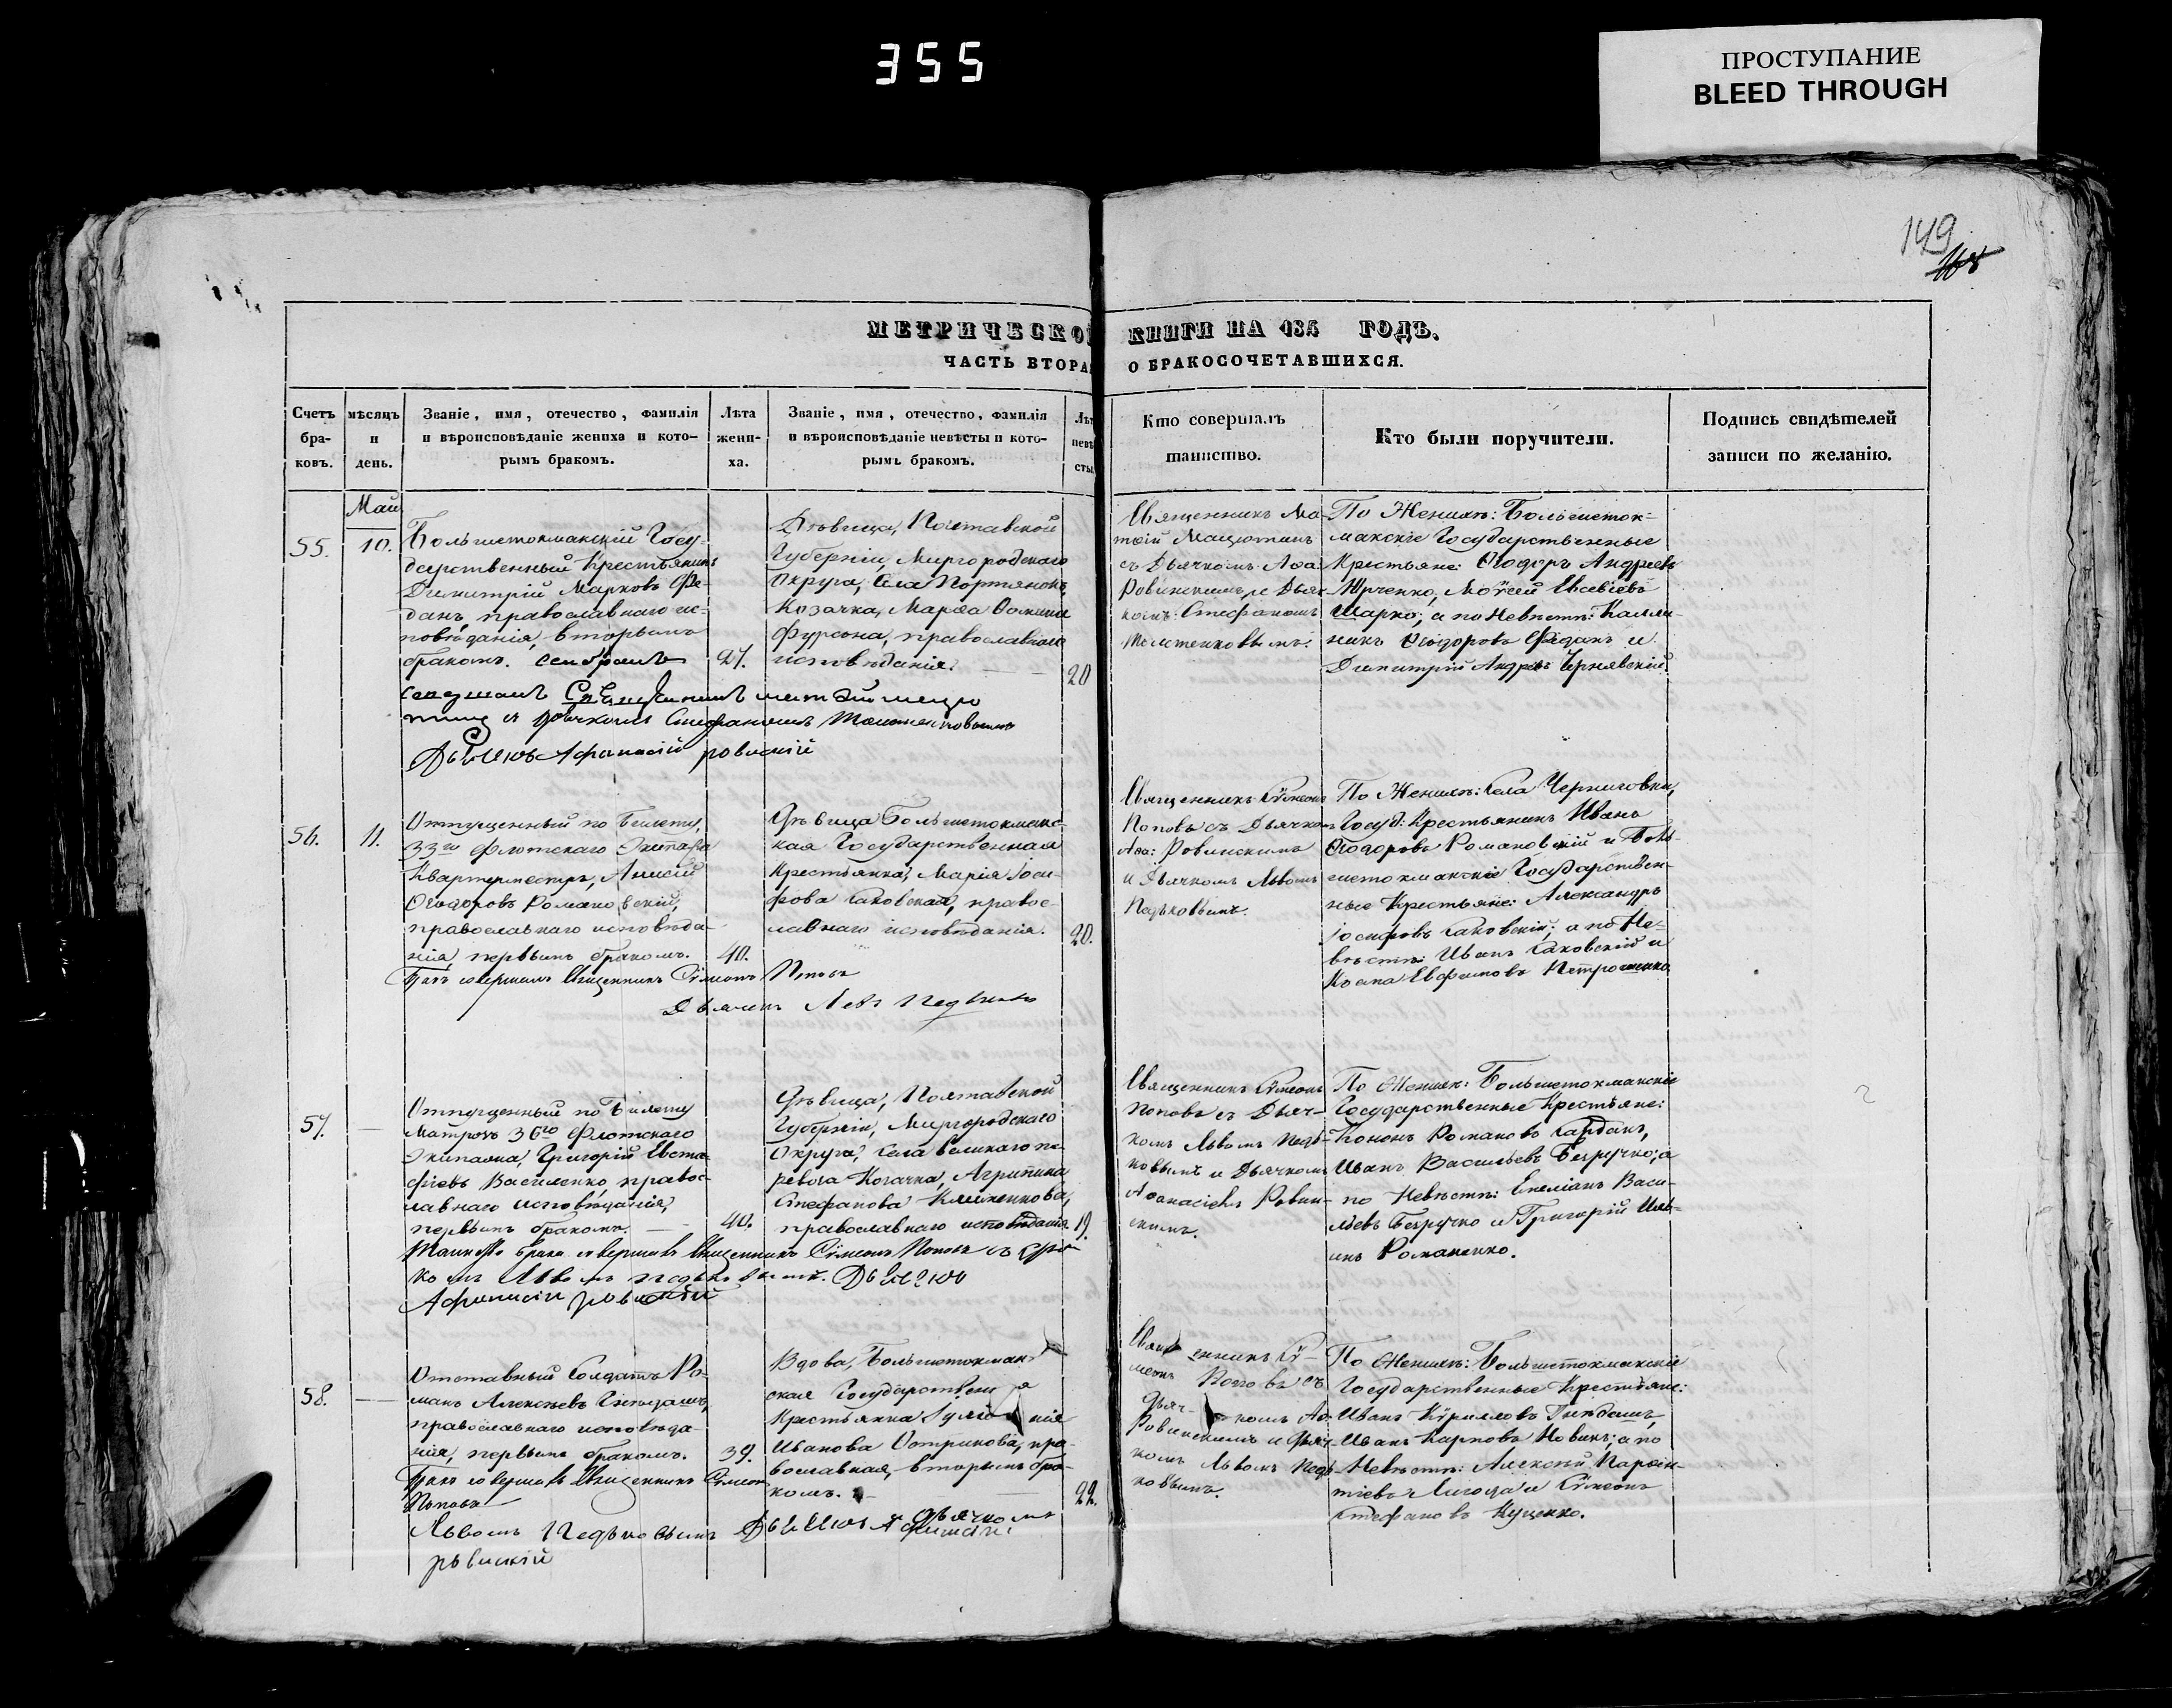 355
ПРОСТУПАНИЕ
BLEED THROUGH
149
МЕТРИЧЕСКОЙ КНИГИ НА 185 ГОДЪ.
ЧАСТЬ ВТОРАЯ О БРАКОСОЧЕТАВШИХСЯ.
Счетъ
бра-
ковъ.
мѣсяцъ
и
день.
Званіе, имя, отечество, фамилія
и вѣроисповѣданіе жениха и кото-
рымъ бракомъ.
Лѣта
жени-
ха.
Званіе, имя, отечество, фамилія
и вѣроисповѣданіе невѣсты и кото-
рымъ бракомъ.
Лѣт
невѣ
сты
Кто совершалъ
таинство.
Кто были поручители.
Подпись свидѣтелей
записи по желанію.
Май
55.
10.
Большетокмакскій Госу-
дарственный Крестьянинъ
Димитрій Марковъ Фе-
данъ, православнаго ис-
повѣданія, вторымъ
бракомъ.
27.
Дѣвица, Полтавской
Губерніи, Миргородскаго
Округа, Села Портянокъ,
Козачка, Марѳа Ѳомина
Фурсова, православнаго
исповѣданія.
20
Священникъ Ма-
тѳій Мацютинъ
съ Дьячкомъ Аѳа:
Ровинскимъ, и Дьяч-
комъ Стефаномъ
По Женихѣ: Большеток-
макскіе Государственные
Крестьяне: Ѳеодоръ Андреевъ
Юрченко, Моѵсей Евсевіевъ
Шарко; а по Невѣстѣ: Калли-
никъ Ѳеодоровъ Феданъ и
Димитрій Андреевъ Чернявскій.
Дьячокъ Афанасій ровискій
56.
11.
Отпущенный по Билету,
33го Флотскаго Экипажа
Квартермистръ, Анисій
Ѳеодоровъ Романовскій,
православнаго исповѣда-
нія, первымъ бракомъ.
40.
Дѣвица Большетокмакс-
кая Государственная
Крестьянка, Марія Іоси-
фова Саковская, правос-
лавнаго исповѣданія.
20.
Священникъ Сѵмеонъ
Поповъ съ Дьячкомъ
Аѳа: Ровинскимъ
и Дьячкомъ Львомъ
Педьковымъ.
По Женихѣ: Села Черниговки,
Госуд: Крестьянинъ Иванъ
Ѳеодоровъ Романовскій и Боль-
шетокмакскіе Государствен-
ные Крестьяне: Александръ
Іосифовъ Саковскій; а по Не-
вѣстѣ: Иванъ Саковскій и
Косма Евфимовъ Петрошенко
Бракъ совершалъ Священникъ Сѵмеонъ Поповъ
Дьячекъ Левъ Педьковъ
57.
Отпущенный по Билету
Матрозъ 36го Флотскаго
Экипажа, Григорій Евста-
фіевъ Василенко, правос-
лавнаго исповѣданія,
первымъ бракомъ.
40.
Дѣвица, Полтавской
Губерніи, Миргородскаго
Округа, Села Великаго пе-
ревоза Козачка, Агрипина
Стефанова Клименкова,
православнаго исповѣданія.
19.
Священникъ Сѵмеонъ
Поповъ съ Дьяч-
комъ Львомъ Педь-
ковымъ и Дьячкомъ
Аѳанасіемъ Ровин-
скимъ.
По Женихѣ: Большетокмакскіе
Государственные Крестьяне:
Кононъ Романовъ
Иванъ Васильевъ Безручко; а
по Невѣстѣ: Емеліанъ Васи-
льевъ Безручко и Григорій Иль-
инъ Романенко.
Таинство Брака совершалъ Священникъ Сѵмеонъ Поповъ съ Дьяч
комъ Львомъ педьковымъ. Дьячокъ
Афанасій ровиский
58.
Отставный Солдатъ Ро-
манъ Алексѣевъ Гнѣдашъ,
православнаго исповѣда-
нія, первымъ бракомъ.
39.
Вдова, Большетокмак-
ская Государственная
Крестьянка Іуліанія
Иванова Острикова, пра-
вославная, вторымъ бра-
комъ.
22.
Священникъ Сѵ-
меонъ Поповъ съ
Дьяч-комъ Аѳ:
Ровинскимъ и Дьяч-
комъ Львомъ Педь-
ковымъ.
По Женихѣ: Большетокмакскіе
Государственные Крестьяне:
Иванъ Кѵрилловъ Гнѣдашъ,
Иванъ Карповъ Новикъ; а по
Невѣстѣ: Алексѣй Парѳен-
тіевъ Лигода и Сѵмеонъ
Стефановъ Куценко.
Бракъ совершалъ Священникъ Сѵмеон
Поповъ
Львомъ Педьковымъ Дьячокъ Афанасій
ровискій